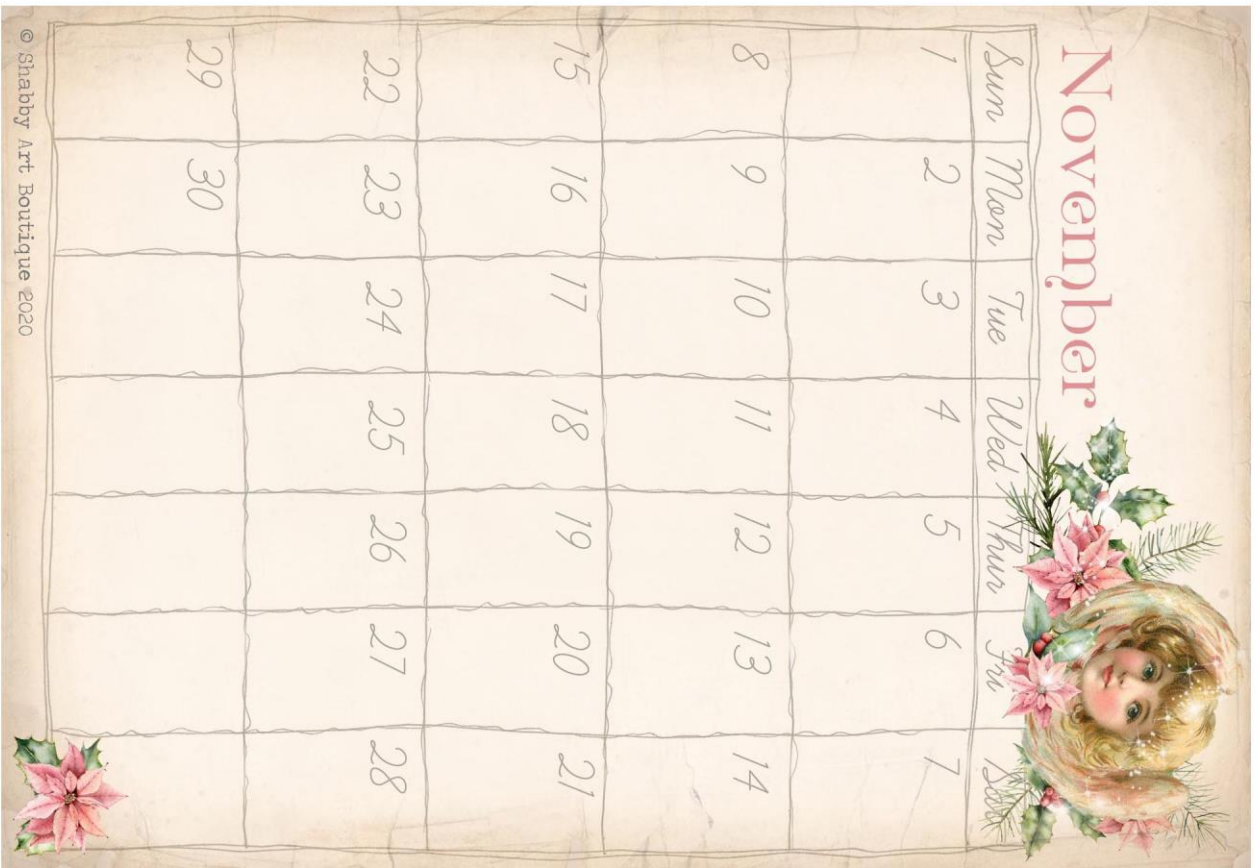 November
Sun Mon Tue Wed Thur Fri
1 2 3 4 5 6 7
8 9 10 11 12 13 14
15 16 17 18 19 20 21
22 23 24 25 26 27 28
29 30
© Shabby Art Boutique 2020